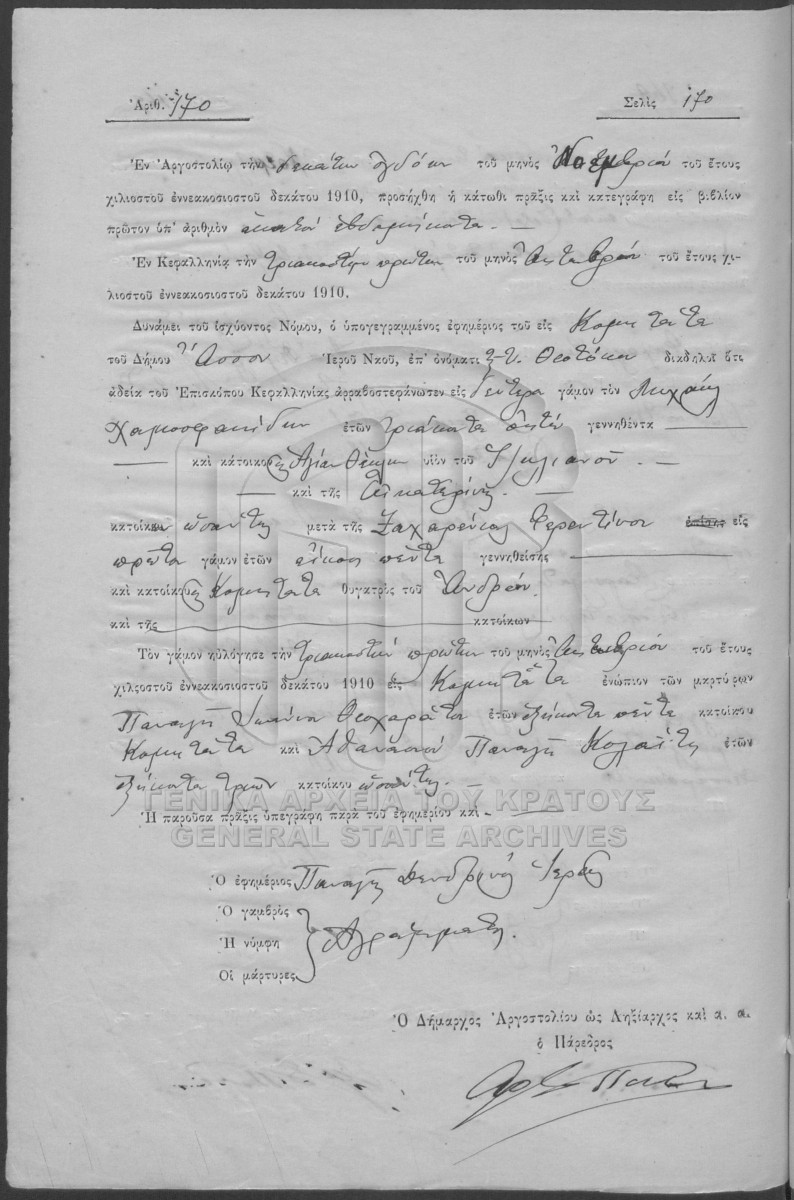 Ἀριθ. 170 Σελὶς 170
Ἐν Ἀργοστολίῳ τὴν δεκάτην ὀγδόην τοῦ μηνὸς Νοεμβρίου τοῦ ἔτους
χιλιοστοῦ ἐννεακοσιοστοῦ δεκάτου 1910, προσήχθη ἡ κάτωθι πρᾶξις καὶ κατεγράφη εἰς βιβλίον
πρῶτον ὑπ' ἀριθμὸν ἑκατὸν ἑβδομήκοντα. —
Ἐν Κεφαλληνίᾳ τὴν τριακοστὴν πρώτην τοῦ μηνὸς Ὀκτωβρίου τοῦ ἔτους χι-
λιοστοῦ ἐννεακοσιοστοῦ δεκάτου 1910.
Δυνάμει τοῦ ἰσχύοντος Νόμου, ὁ ὑπογεγραμμένος ἐφημέριος τοῦ εἰς Κομητάτα
τοῦ Δήμου Ἄσσου Ἱεροῦ Ναοῦ, ἐπ' ὀνόματι Θεοτόκου διαδηλοῖ ὅτι
ἀδείᾳ τοῦ Ἐπισκόπου Κεφαλληνίας ἀρραβοστεφάνωσεν εἰς δεύτερο γάμον τὸν Μιχαὴλ
ἐτῶν τριάκοντα ὀκτὼ γεννηθέντα
καὶ κάτοικον Ἁγίαν Θέκλην υἱὸν τοῦ
καὶ τῆς Αἰκατερίνης. —
κατοίκων ὡσαύτως μετὰ τῆς Ζαχαρένιας Φερεντίνου ἐπίσης εἰς
πρῶτο γάμον ἐτῶν εἴκοσι πέντε γεννηθείσης
καὶ κατοίκου Κομητάτα θυγατρὸς τοῦ Ἀνδρέου.
καὶ τῆς κατοίκων
Τὸν γάμον ηὐλόγησε τὴν τριακοστὴν πρώτην τοῦ μηνὸς Ὀκτωβρίου τοῦ ἔτους
χιλιοστοῦ ἐννεακοσιοστοῦ δεκάτου 1910 εἰς Κομητάτα ἐνώπιον τῶν μαρτύρων
Παναγῆ Θεοχαράτου ἐτῶν ἑξήκοντα πέντε κατοίκου
Κομητάτα καὶ Ἀθανασίου Παναγῆ Κολαΐτης ἐτῶν
ἑξήκοντα τριῶν κατοίκου ὡσαύτως. —
ΓΕΝΙΚΑ ΑΡΧΕΙΑ ΤΟΥ ΚΡΑΤΟΥΣ
Ἡ παροῦσα πρᾶξις ὑπεγράφη παρὰ τοῦ ἐφημερίου καὶ
GENERAL STATE ARCHIVES
Ὁ ἐφημέριος Παναγῆς Δενδρινὸς Ἱερεὺς
Ὁ γαμβρὸς
Ἡ νύμφη Ἀγράμματοι.
Οἱ μάρτυρες
Ὁ Δήμαρχος Ἀργοστολίου ὡς Ληξίαρχος καὶ α. α.
ὁ Πάρεδρος